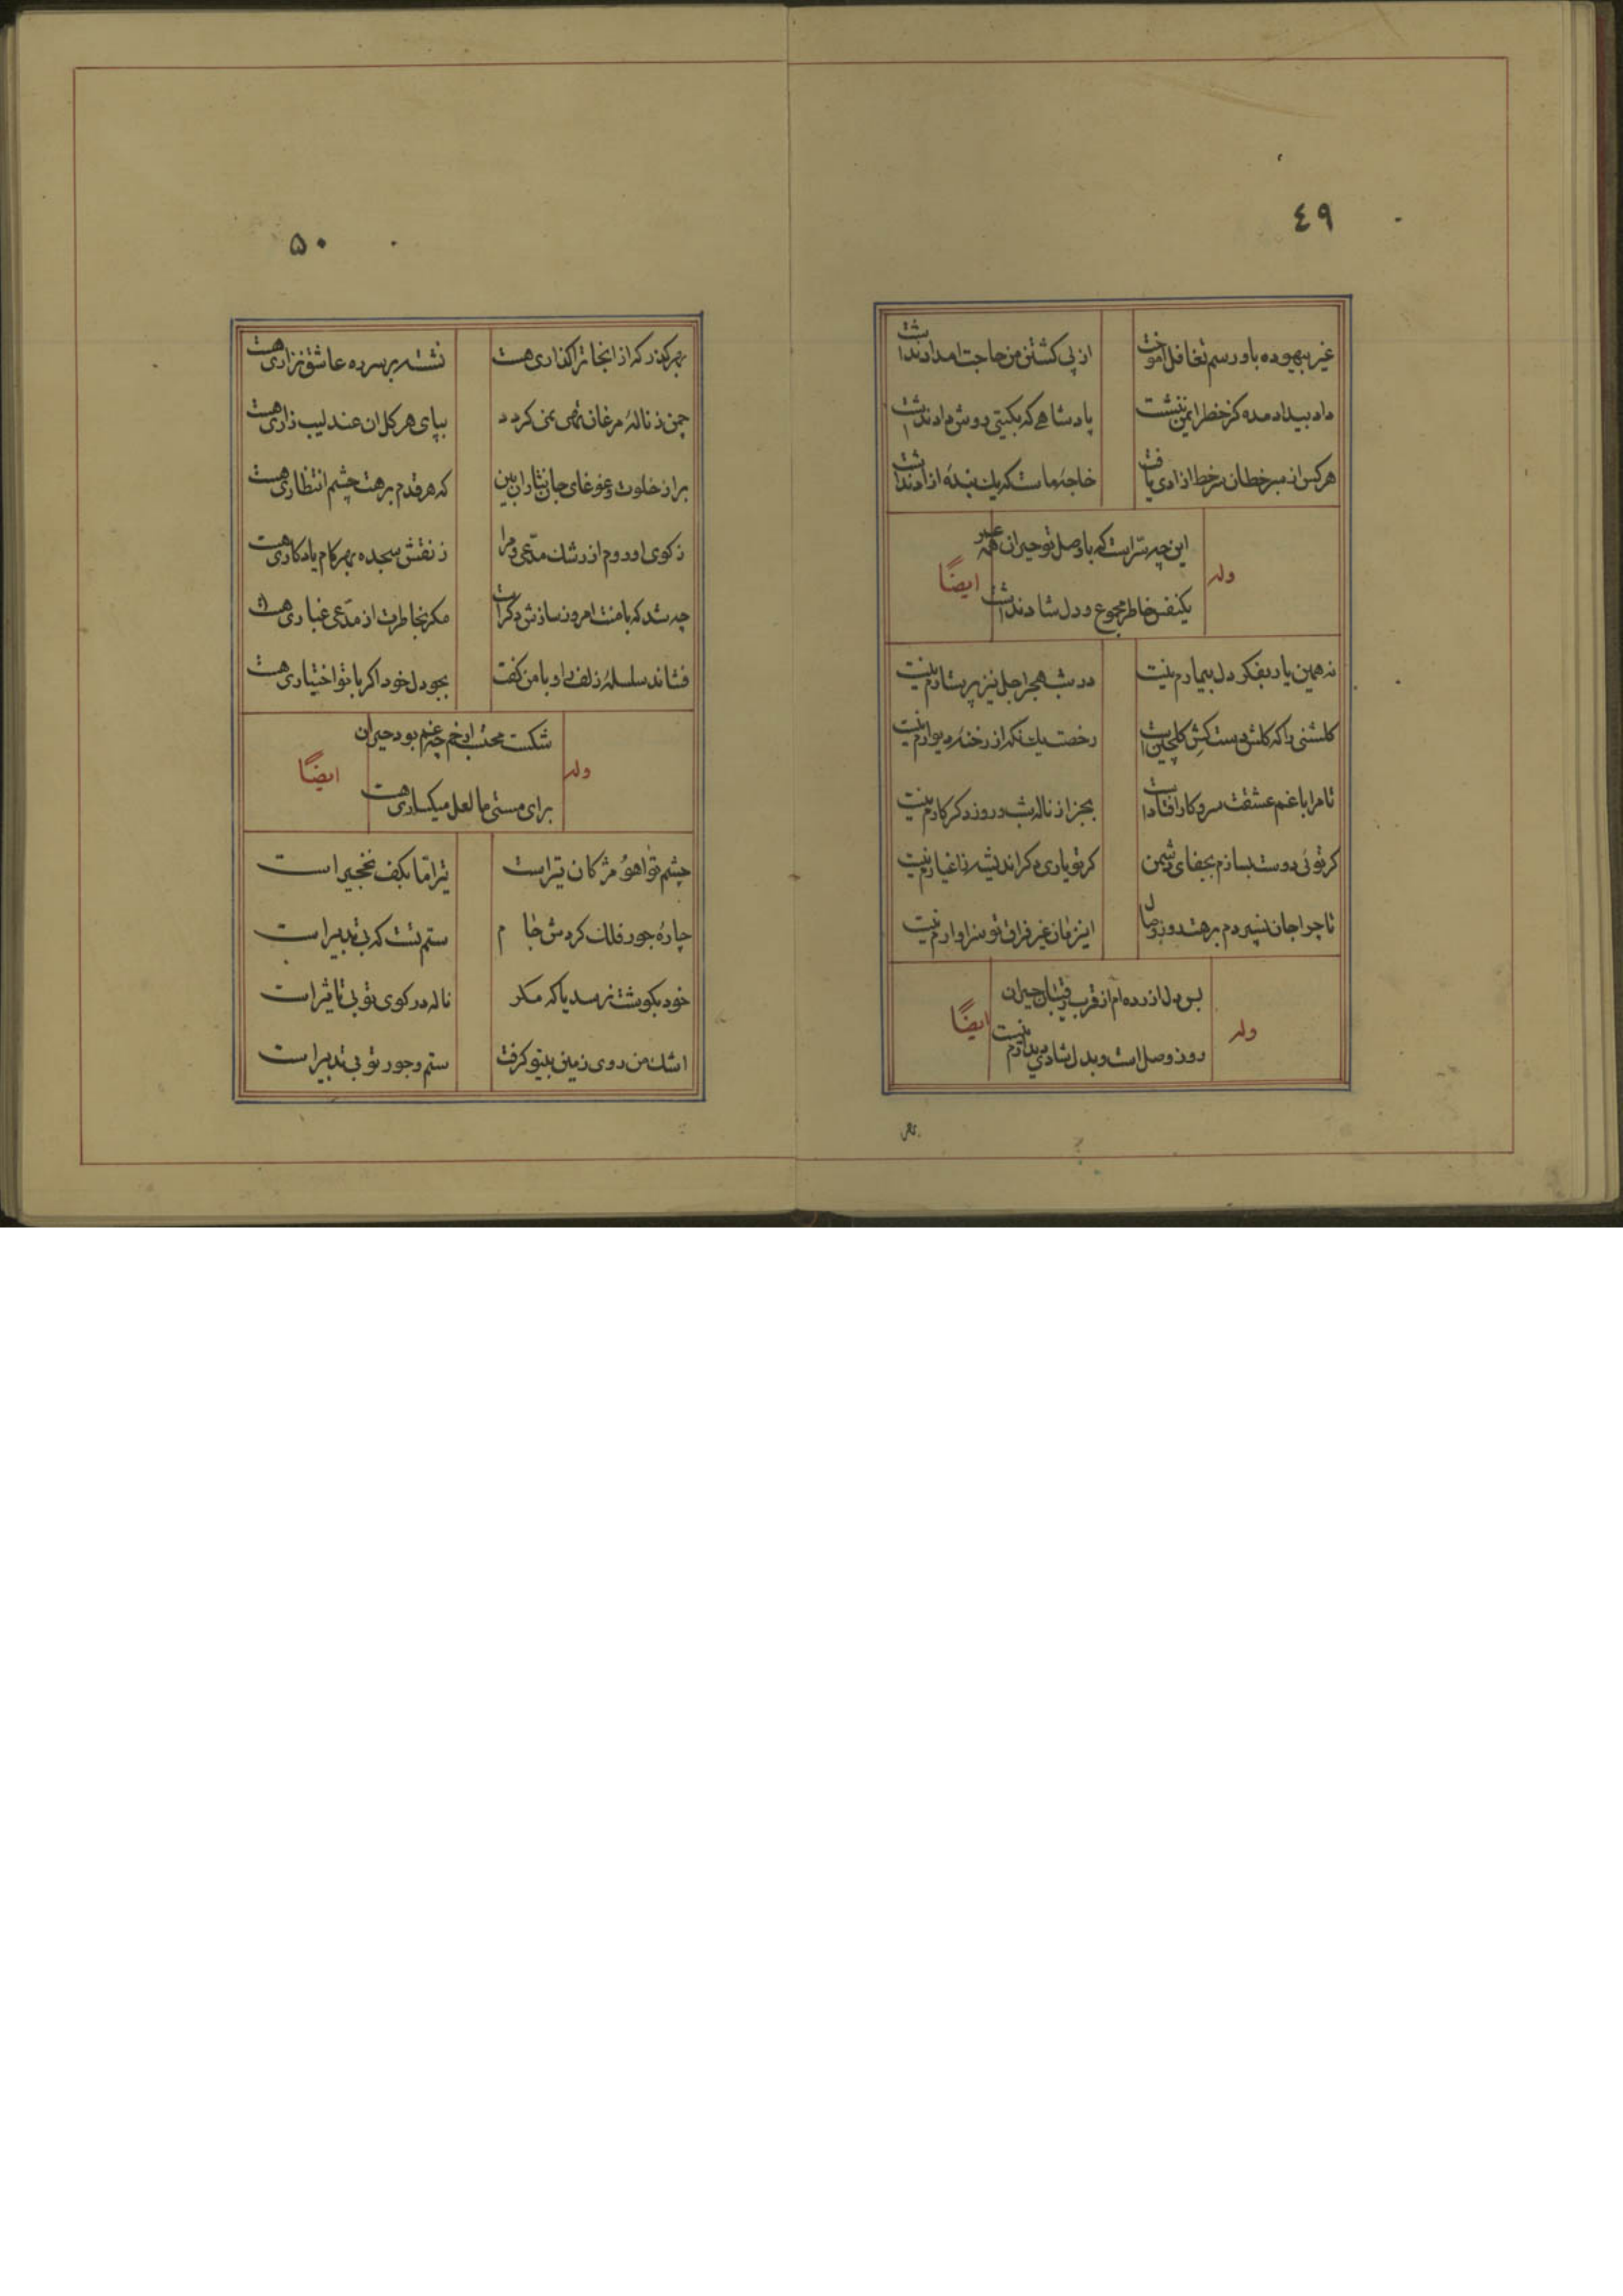 ٤٩
غیر بیهوده باو رسم تغافل اموخت از پی کشتن من حاجت امداد نداشت
داد بیداد مده کز خطر ایمن ننشست پادشاهی که بکیتی روش داد نداشت
هر کس از سبز خطان سر خط ازادی یافت خاجه ماست که یک بنده ازاد نداشت
وله
این چه سریست که با وصل تو حیران همه عمر
ایضاً
یکنفس خاطر مجموع و دل شاد نداشت
نه همین یار بفکر دل بیمارم نیست در شب هجر اجل نیز پرستارم نیست
کلشنی را که کلش دست کش کلچین است رخصت یک نکه از رخنه دیوارم نیست
تا مرا با غم عشقت سر و کار افتاد است بجز از ناله شب و روز دکر کارم نیست
کر توئی دوست بسازم بجفای دشمن کر تو یاری دکر اندیشه ز اغیارم نیست
تا چرا جان نسپردم برهت روز وصال این زمان غیر فراق تو سزاوارم نیست
وله
بس دل ازرده ام از قرب رقیبان حیران
ایضاً
روز وصل است و بدل شادی دیدارم نیست
بهر
۵۰
بهر کذر که از انجا ترا کذاری هست نشسته بر سر ره عاشق نزاری هست
چمن ز ناله مرغان تهی نمی کردد بپای هر کل ان عندلیب زاری هست
برا ز خلوت و غوغای جان نثاران بین که هر قدم برهت چشم انتظاری هست
ز کوی او روم از رشک مدعی و مرا ز نقش سجده بهر کام یادکاری هست
چه شد که با منت امروز سازش دکر است مکر بخاطرت از مدعی غباری هست
فشاند سلسله زلف را و با من کفت بجو دل خود اکر با تو اختیاری هست
وله
شکست محتسب ار خم چه غم بود حیران
ایضاً
برای مستی ما لعل میکساری هست
چشم تو اهو مژکان تیر است تیر اما بکف نخجیر است
چاره جور فلک کردش جام ستم تست که بی تدبیر است
خود بکوشت نرسد یا که مکر ناله در کوی تو بی تاثیر است
اشک من روی زمین بیتو کرفت ستم و جور تو بی تدبیر است